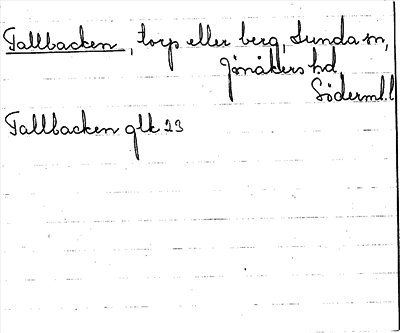 Tallbacken, torp eller berg, Lunda sn,
Jönåkers hd,
Söderml. l
Tallbacken glk 23